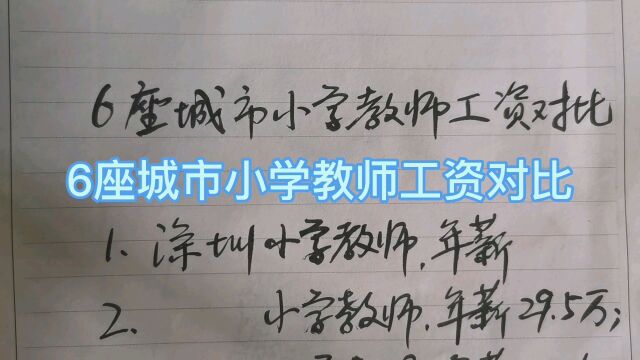 6座城市小学教师工资对比
6座城市小学教师工资对比
1. 深圳小学教师,年薪
2. 小学教师,年薪29.5万;